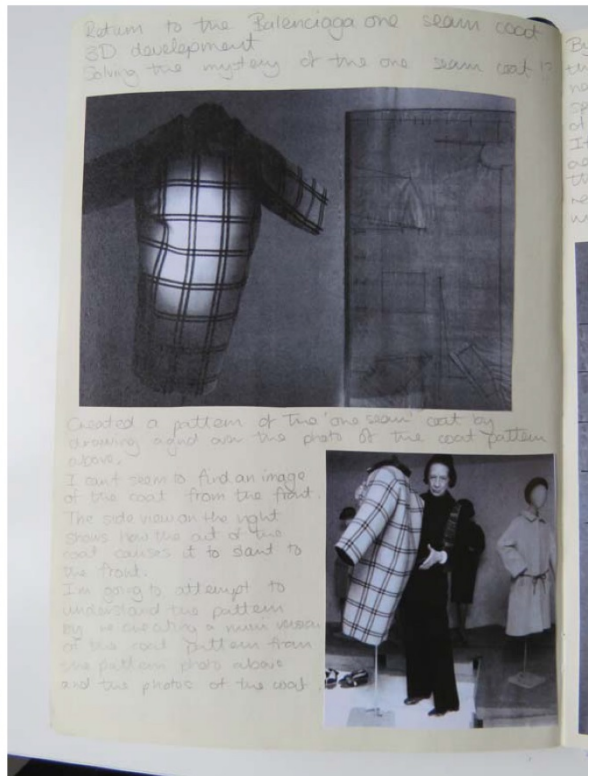 Return to the Balenciaga one seam coat
3D development
Solving the mystery of the one seam coat !?
Created a pattern of the 'one seam' coat by
drawing a grid over the photo of the coat pattern
above.
I can't seem to find an image
of the coat from the front.
The side view on the right
shows how the cut of the
coat causes it to slant to
the front.
I'm going to attempt to
understand the pattern
by re-creating a mini version
of the coat pattern from
the pattern photo above
and the photos of the coat.
By